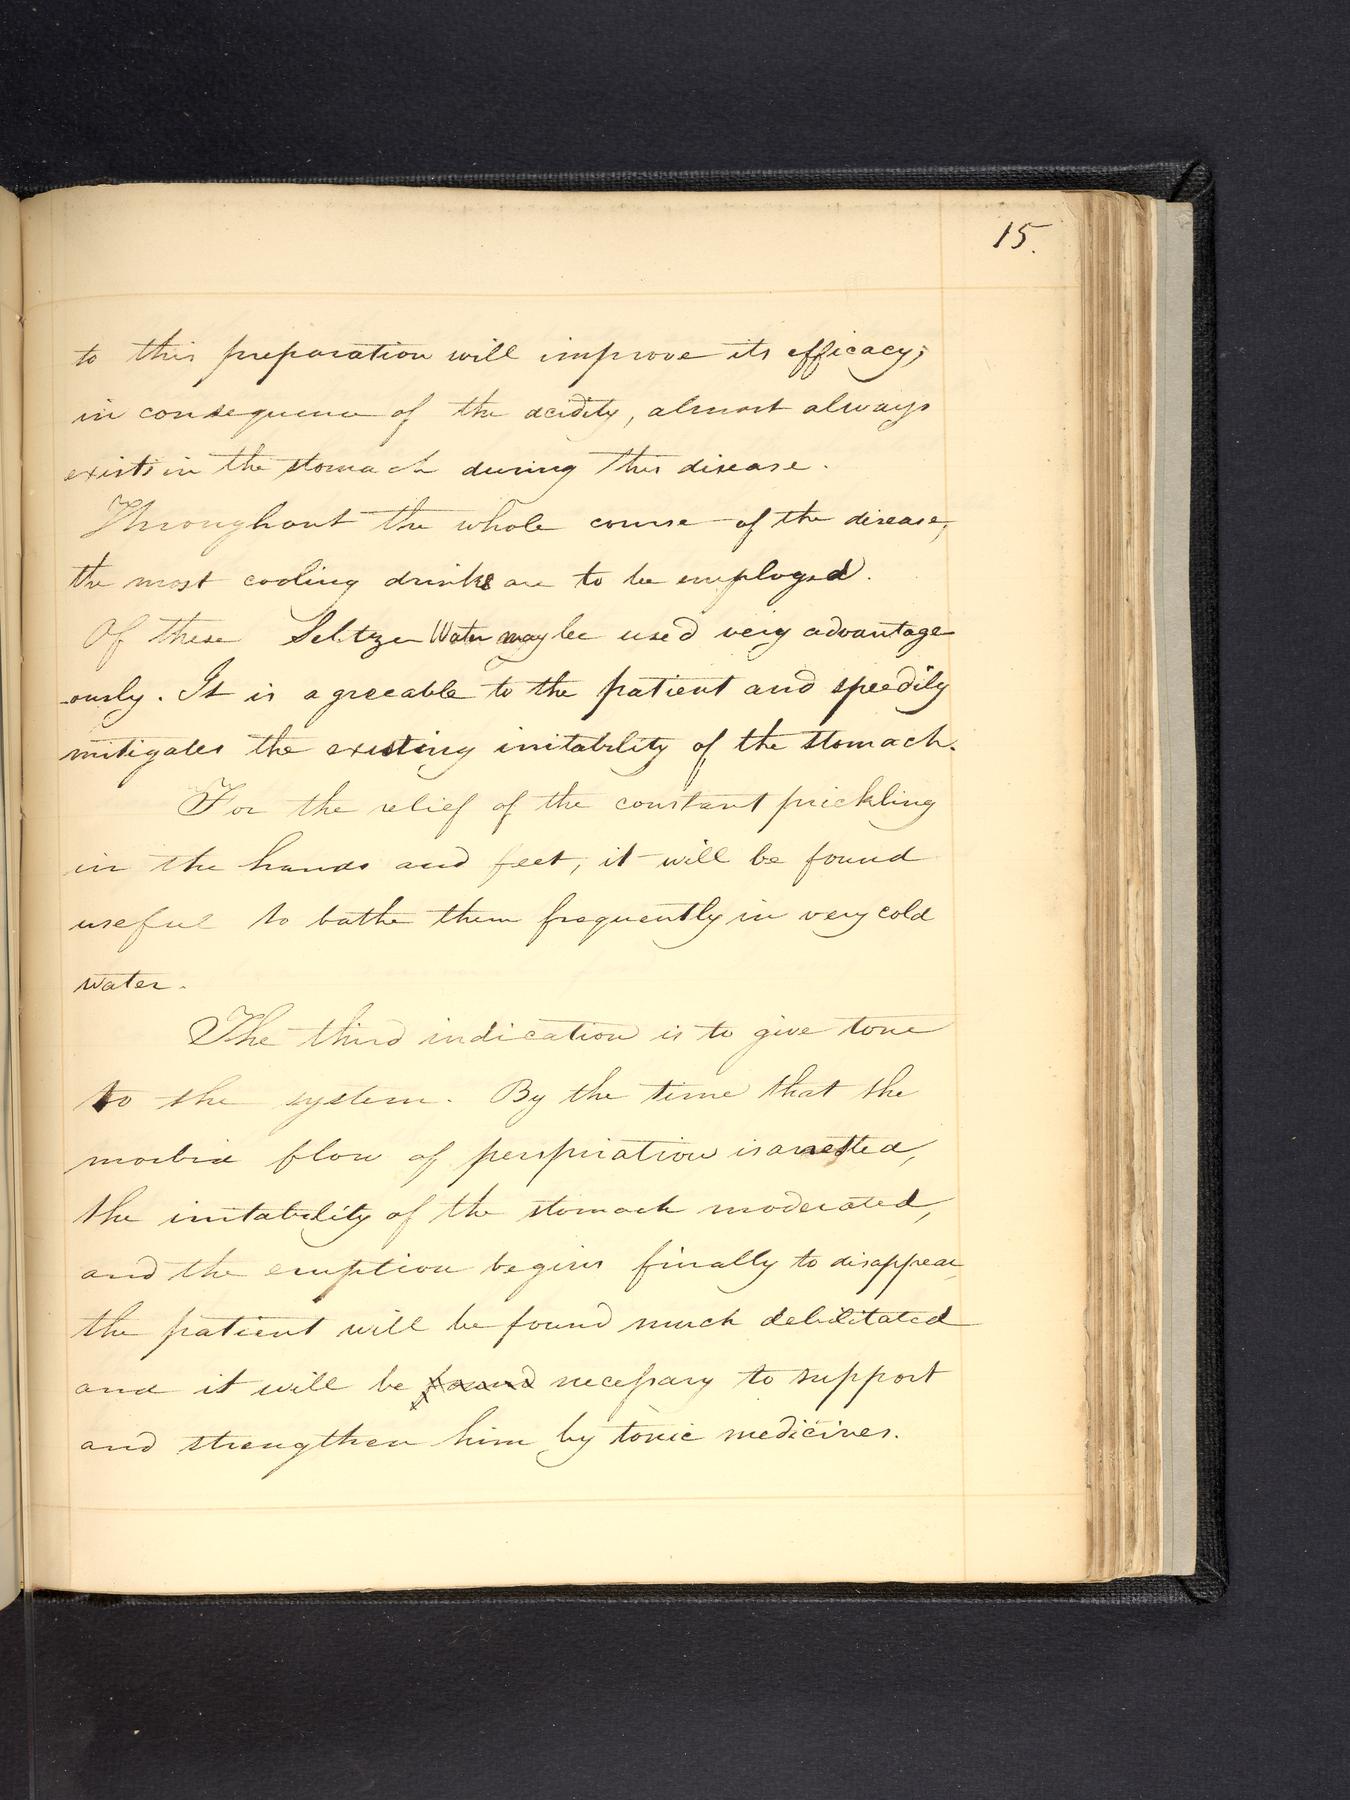 15.
to this preparation will improve its efficacy;
in consequence of the acidity, almost always
exists in the stomach during this disease.
Throughout the whole course of the disease,
the most cooling drinks are to be employed.
Of these Seltzer Water may be used very advantage
-ously. It is agreeable to the patient and speedily
mitigates the existing irritability of the stomach.
For the relief of the constant prickling
in the hands and feet, it will be found
useful to bathe them frequently in very cold
water.
The third indication is to give tone
to the system. By the time that the
morbid flow of perspiration is arrested,
the irritability of the stomach moderated,
and the eruption begins finally to disappear,
the patient will be found much debilitated
and it will be found necessary to support
and strengthen him by tonic medicines.